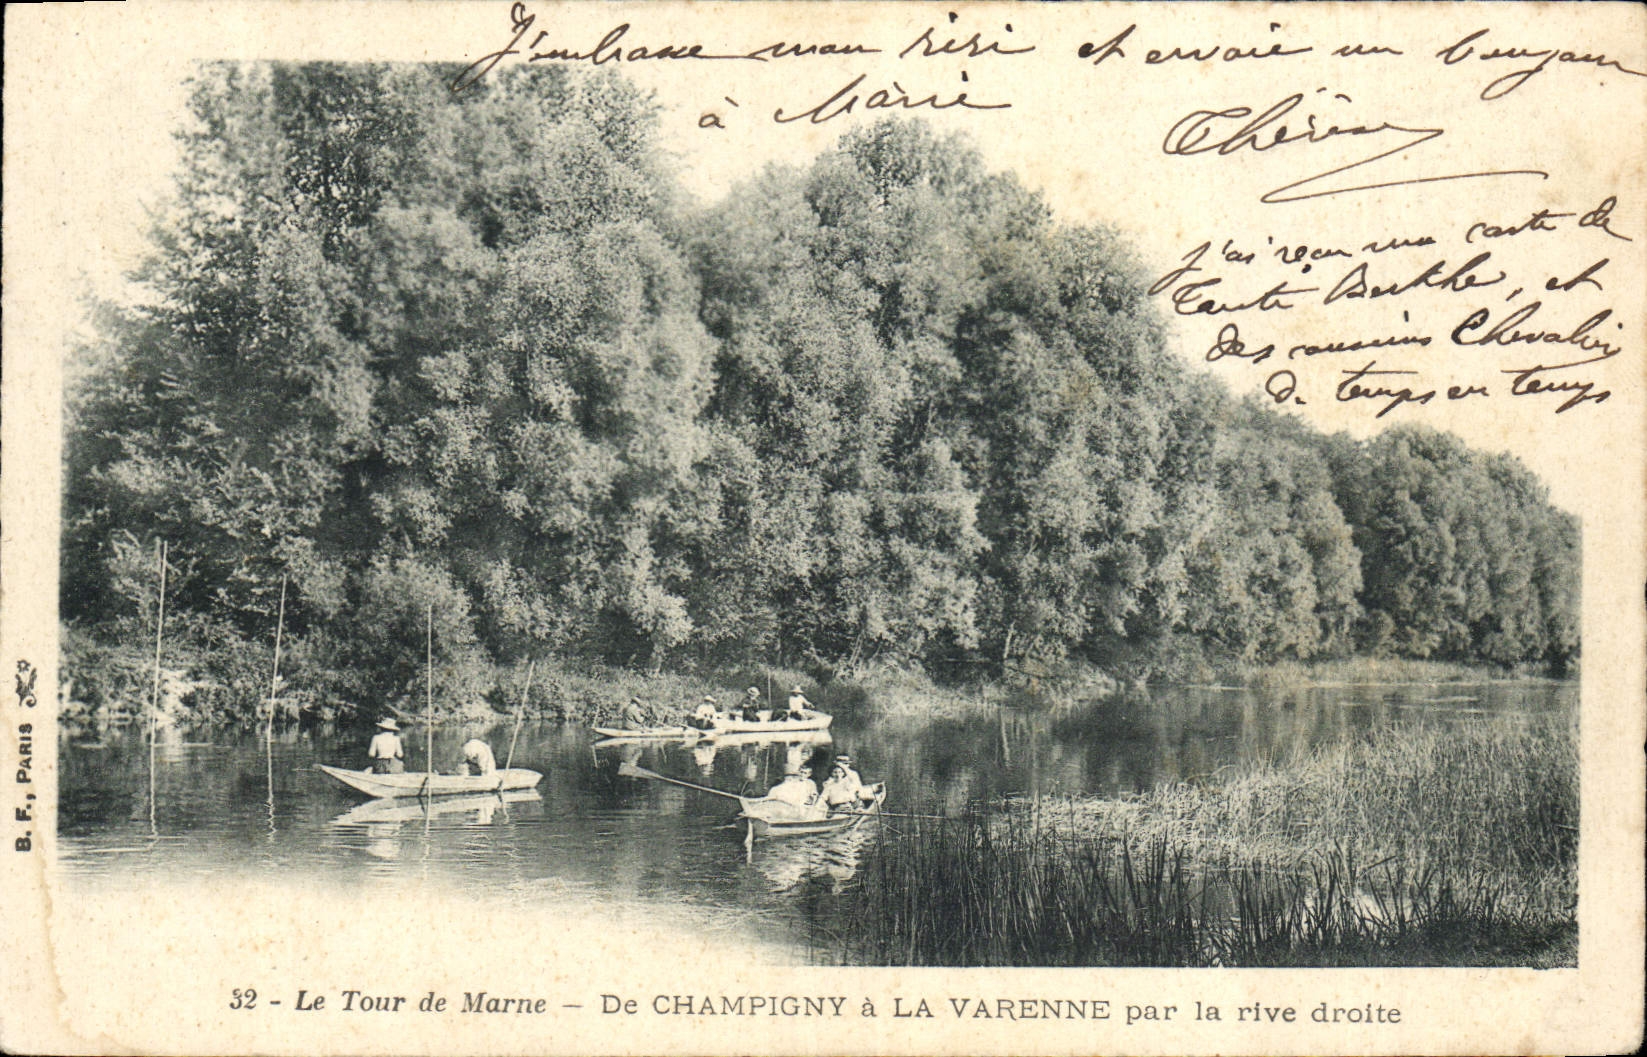 J'embrasse mon Riri et envoie un bonjour
à Marie
Thérèse
J'ai reçu une carte de
Tante Berthe, et
des cousins Chevalier
de temps en temps
B. F., PARIS
32 - Le Tour de Marne — De CHAMPIGNY à LA VARENNE par la rive droite